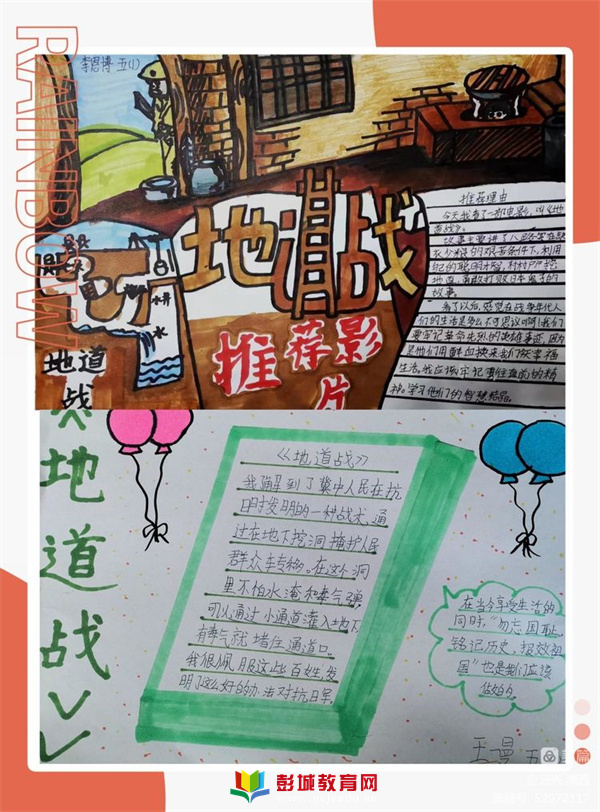 RAINBOW
李恩博 五(1)
地道战
推荐影
片
水
井
水
地道
战
推荐理由
今天我看了一部电影,叫《地
道战》。
故事主要讲了人民
的艰苦条件下,利用
自己的聪明才智,村村户户挖
地道,勇敢打败日本鬼子的
故事。
看了以后,感觉在战争年代人
们的生活是多么不可思议啊!我们
要牢记革命先烈的英雄事迹,因为
是他们用鲜血换来我们
生活。我应该牢记
神。学习他们的智慧结晶。
《地道战》
《地道战》
我了解到了冀中人民在抗
日时发明的一种战术,通
过在地下挖洞掩护人民
群众转移。在这个洞
里不怕水淹和毒气弹,
可以通过小通道灌入地下
有毒气就堵住通道口。
我很佩服这些百姓,发
明了这么好的办法对抗日军。
在当今享受生活的
同时,“勿忘国耻
铭记历史,报效祖
国”也是我们应该
做的。
王曼 五
彭城教育网